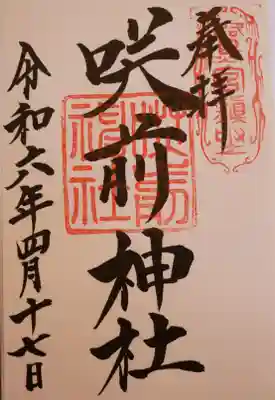 奉拝
咲前神社
令和六年四月十七日
咲前神社